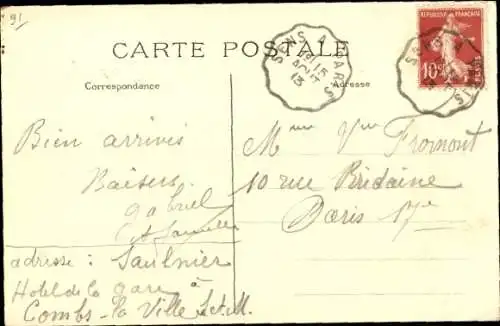 91
CARTE POSTALE
Correspondance
Adresse
SENS A PARIS
15
AOUT
13
REPUBLIQUE FRANÇAISE
10c
POSTES
Bien arrivés
Baisers.
Gabriel
et famille
adresse : Saulnier
Hotel de la gare à
Combs-la Ville S.et.M.
Mme Vve Fromont
10 rue Bridaine
Paris 17e